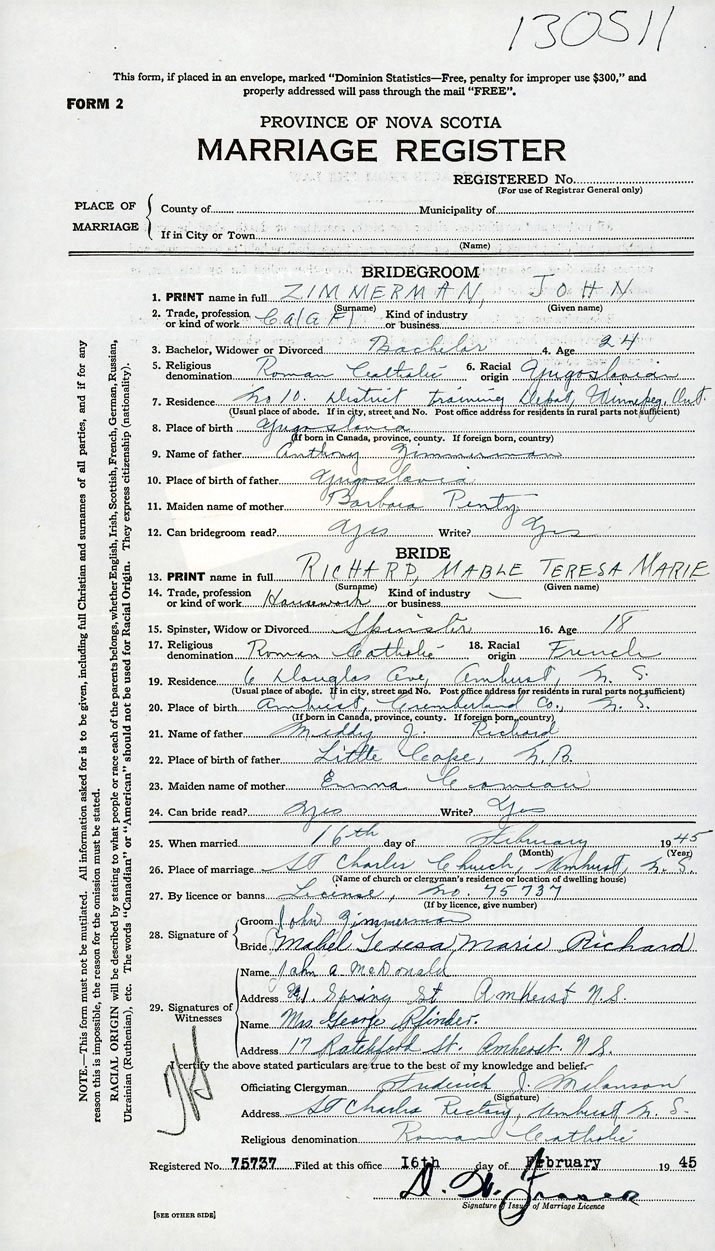 130511
This form, if placed in an envelope, marked “Dominion Statistics—Free, penalty for improper use $300,” and
properly addressed will pass through the mail “FREE”.
FORM 2
PROVINCE OF NOVA SCOTIA
MARRIAGE REGISTER
REGISTERED No.
(For use of Registrar General only)
PLACE OF MARRIAGE
County of Municipality of
If in City or Town
(Name)
BRIDEGROOM
1. PRINT name in full ZIMMERMAN, JOHN
(Surname) (Given name)
2. Trade, profession or kind of work C.A.(A.F.) Kind of industry or business
3. Bachelor, Widower or Divorced Bachelor 4. Age 24
5. Religious denomination Roman Catholic 6. Racial origin Yugoslavian
7. Residence No 10. District Training Depot, Winnipeg, Ont.
(Usual place of abode. If in city, street and No. Post office address for residents in rural parts not sufficient)
8. Place of birth Yugoslavia
(If born in Canada, province, county. If foreign born, country)
9. Name of father Anthony Zimmerman
10. Place of birth of father Yugoslavia
11. Maiden name of mother Barbara Penty
12. Can bridegroom read? Yes Write? Yes
BRIDE
13. PRINT name in full RICHARD, MABLE TERESA MARIE
(Surname) (Given name)
14. Trade, profession or kind of work Housework Kind of industry or business —
15. Spinster, Widow or Divorced Spinster 16. Age 18
17. Religious denomination Roman Catholic 18. Racial origin French
19. Residence 6 Douglas Ave, Amherst, N. S.
(Usual place of abode. If in city, street and No. Post office address for residents in rural parts not sufficient)
20. Place of birth Amherst, Cumberland Co., N. S.
(If born in Canada, province, county. If foreign born, country)
21. Name of father Middy J. Richard
22. Place of birth of father Little Cape, N.B.
23. Maiden name of mother Emma Comeau
24. Can bride read? Yes Write? Yes
25. When married 16th day of February 1945
(Month) (Year)
26. Place of marriage St Charles Church, Amherst, N. S.
(Name of church or clergyman's residence or location of dwelling house)
27. By licence or banns License, No. 75737
(If by licence, give number)
28. Signature of
Groom John Zimmerman
Bride Mabel Teresa Marie Richard
29. Signatures of Witnesses
Name John A McDonald
Address 21. Spring St Amherst N.S.
Name Mrs. George Pfinder.
Address 17 Ratchford St. Amherst. N.S.
I certify the above stated particulars are true to the best of my knowledge and belief.
Officiating Clergyman Frederick J. Melanson
(Signature)
Address St Charles Rectory, Amherst N. S.
Religious denomination Roman Catholic
Registered No. 75737 Filed at this office 16th day of February 1945
D. W. Fraser
Signature of Issuer of Marriage Licence
[SEE OTHER SIDE]
NOTE.—This form must not be mutilated. All information asked for is to be given, including full Christian and surnames of all parties, and if for any
reason this is impossible, the reason for the omission must be stated.
RACIAL ORIGIN will be described by stating to what people or race each of the parents belongs, whether English, Irish, Scottish, French, German, Russian,
Ukrainian (Ruthenian), etc. The words “Canadian” or “American” should not be used for Racial Origin. They express citizenship (nationality).